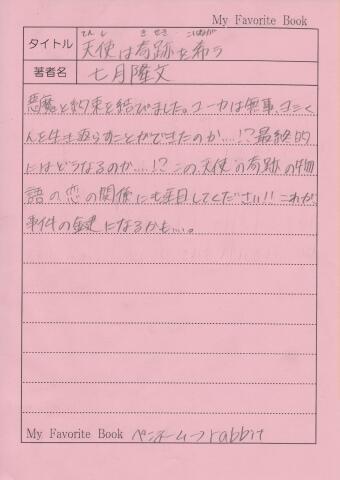 My Favorite Book
てんし きせき こいねが
タイトル 天使は奇跡を希う
著者名 七月隆文
悪魔と約束を結びました。ユーカは無事、ヨミく
んを生き返らすことができたのか…!?最終的
にはどうなるのか…!?この天使の奇跡の物
語の恋の関係にも注目してください!!これが
事件の鍵になるかも…。
My Favorite Book ペンネーム→rabbit